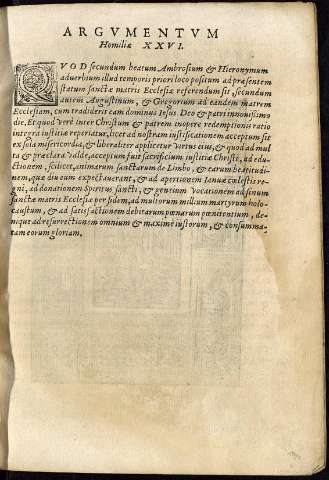 ARGVMENTVM
Homiliæ XXVI.
QVOD secundum beatum Ambrosium & Hieronymum
aduerbium illud temporis priori loco positum ad præsentem
statum sanctæ matris Ecclesiæ referendum sit, secundum
autem Augustinum, & Gregorium ad eandem matrem
Ecclesiam, cum tradiderit eam dominus Iesus Deo & patri in nouissimo
die. Et quod verè inter Christum & patrem in opere redemptionis ratio
integra iustitiæ reperiatur, licet ad nostram iustificationem acceptum sit
ex sola misericordia, & liberaliter applicetur virtus eius, & quod ad mul
ta & præclara valde, acceptum fuit sacrificium iustitiæ Christi, ad edu-
ctionem, scilicet, animarum sanctarum de Limbo, & earum beatitudi-
nem, quæ diu eum expectauerant, & ad apertionem Ianuæ cælestis re-
gni, ad donationem Spiritus sancti, & gentium Vocationem ad sinum
sanctæ matris Ecclesiæ per fidem, ad multorum millium martyrum holo-
caustum, & ad satisfactionem debitarum pœnarum pœnitentium, de-
nique ad resurrectionem omnium & maximè iustorum, & consumma-
tam eorum gloriam.